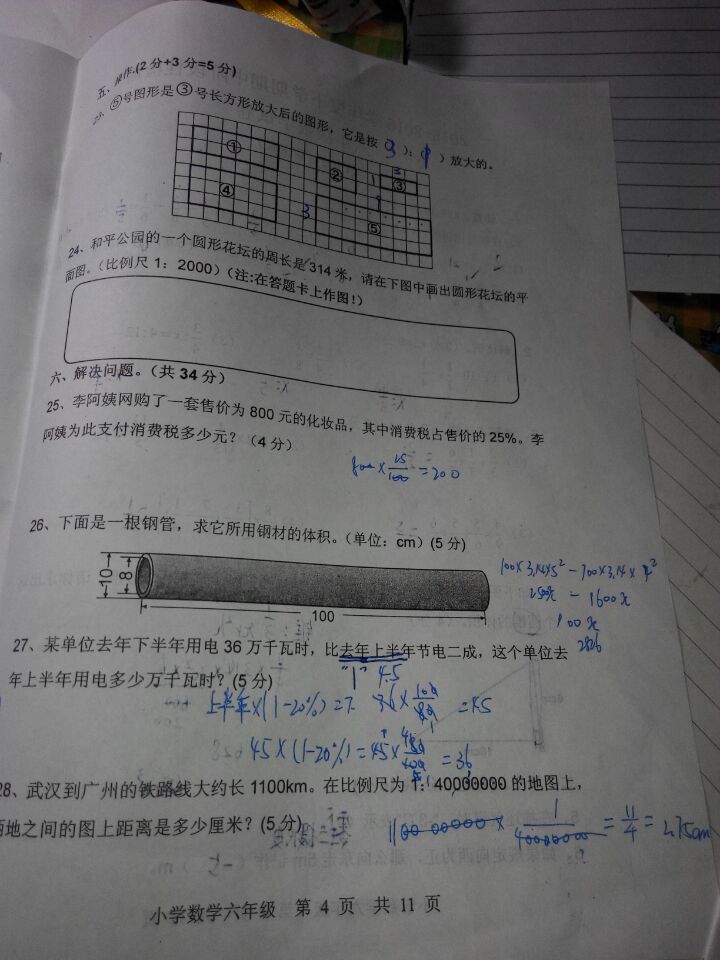 五、操作.(2分+3分=5分)
23、⑤号图形是③号长方形放大后的图形，它是按（3）:（1）放大的。
① ② ③ ④ ⑤
3
24、和平公园的一个圆形花坛的周长是314米，请在下图中画出圆形花坛的平
面图。（比例尺1：2000）（注:在答题卡上作图!）
六、解决问题。（共34分）
25、李阿姨网购了一套售价为800元的化妆品，其中消费税占售价的25%。李
阿姨为此支付消费税多少元？（4分）
800×25/100=200
26、下面是一根钢管，求它所用钢材的体积。（单位：cm）(5分)
10 8 100
100×3.14×5²-100×3.14×4²
2500π-1600π
900π
2826
27、某单位去年下半年用电36万千瓦时，比去年上半年节电二成，这个单位去
"1" 45
年上半年用电多少万千瓦时？(5分)
上半年×(1-20%)=下 36×100/80=45
45×(1-20%)=45×80/100=36
28、武汉到广州的铁路线大约长1100km。在比例尺为1：40000000的地图上，
两地之间的图上距离是多少厘米？(5分)
1100 00000×1/40000000=11/4=2.75cm
小学数学六年级 第 4 页 共 11 页